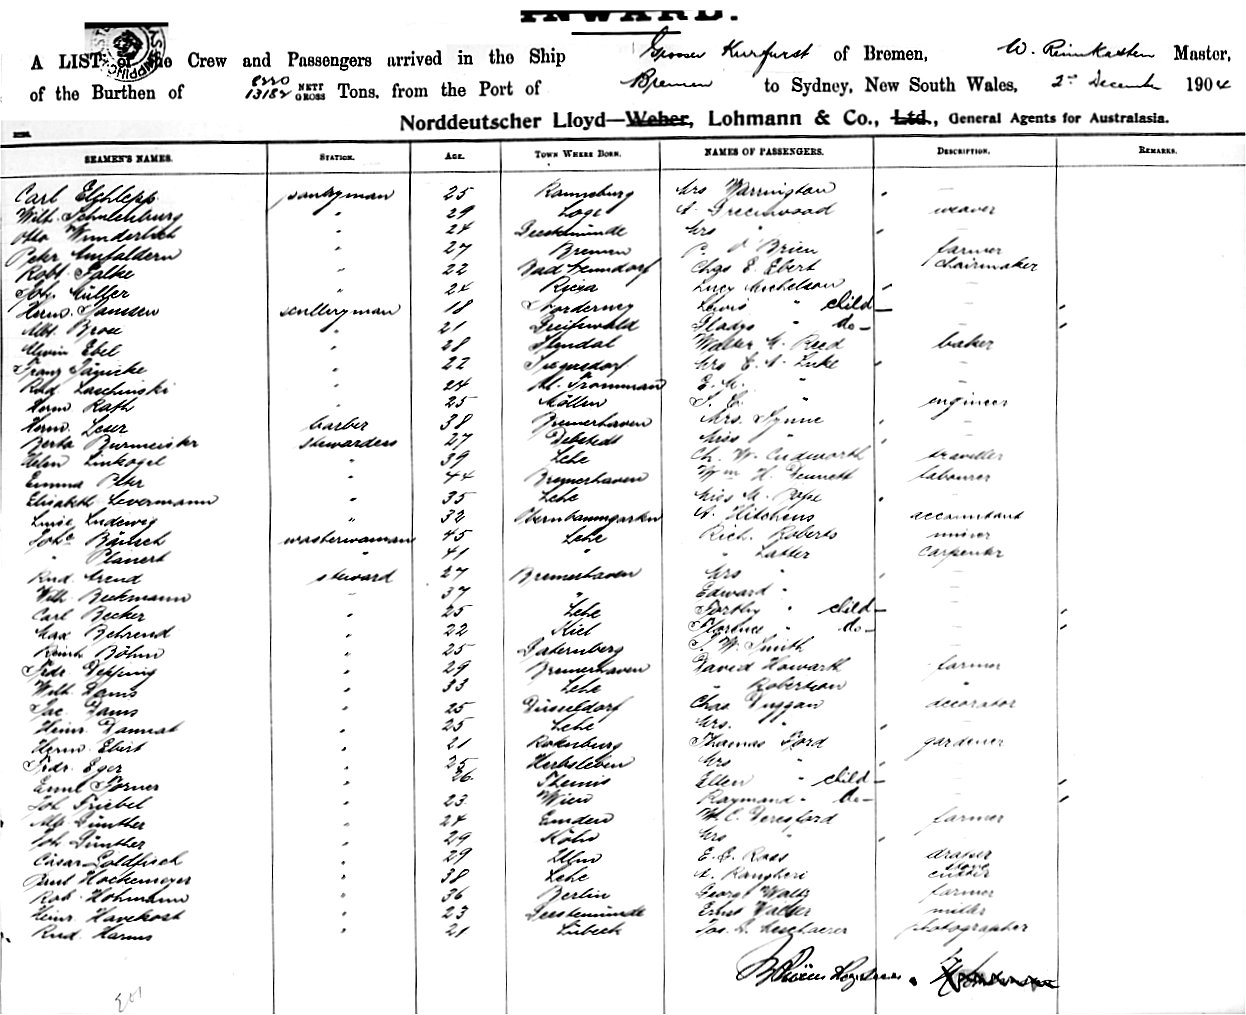 INWARD.
A LIST of the Crew and Passengers arrived in the Ship Grosser Kurfurst of Bremen, W. Reimkasten Master,
of the Burthen of 13182 NETT GROSS Tons, from the Port of Bremen to Sydney, New South Wales, 2nd December 1904
Norddeutscher Lloyd—Weber, Lohmann & Co., Ltd., General Agents for Australasia.
SEAMEN'S NAMES. STATION. AGE. TOWN WHERE BORN. NAMES OF PASSENGERS. DESCRIPTION. REMARKS.
Carl pantryman 25 Mrs Warrington
Wilh. Schulenburg " 29 Loge A. Greenwood weaver
Otto Wunderlich " 24 Geestemünde Mrs "
Peter 27 Bremen P. O'Brien farmer
Robt. Falke " 22 Bad Nenndorf Chas E. Ebert chairmaker
Joh. Müller " 24 Riesa Lucy Michelson
Herm. Janssen sculleryman 18 Norderney Lewis " child
Alb. Brose " 21 Greifswald Gladys " do
Alwin Ebel " 28 Stendal Walter G. Reed baker
Franz Jänicke " 22 Mrs E. A. Luke
Rud. Laschinski " 24 E. M. "
Herm. Rath " 25 Möllen S. C. " engineer
Herm. Leser barber 38 Bremerhaven Mrs. Lynne
Berta Burmeister stewardess 27 Debstedt Miss "
Helen Linkogel " 39 Lehe Ch. W. Cudworth traveller
Emma Behr " 44 Bremerhaven Wm H. Dennett labourer
Elisabeth Levermann " 35 Lehe Miss M. Pope
Luise Ludewig " 32 Obernbaumgarten A. Hitchens accountant
Joha Bänsch washerwoman 45 Lehe Rich. Roberts miner
" Planert " 41 " " Latter carpenter
Rud. steward 27 Bremerhaven Mrs "
Wilh. Beckmann 37 " Edward "
Carl Becker " 25 Lehe Dorothy " child
Max Behrend " 22 Kiel Florence " do
Reinh. Böhm " 25 J. W. Smith
Frdr. Depping " 29 Bremerhaven David Howarth farmer
Wilh. Dams " 33 Lehe " Robertson "
Jac. Dams " 25 Düsseldorf Chas Duggan decorator
Heinr. Dannat " 25 Lehe Mrs. "
Herm. Ebert " 21 Rotenburg Thomas Ford gardener
Frdr. Eger " 25 Herbsleben Mrs "
Emil Forner " 26 Themis Ellen " child
Joh. Friebel " 23 Wien Raymond " do
Alb. Günther " 24 Emden W. C. Beresford farmer
Joh. Günther " 29 Köln Mrs "
Cäsar Goldfisch " 29 Ulm E. C. Ross draper
Paul Hockemeyer " 38 Lehe A. Rangheri cutter
Rob. Hohmann " 36 Berlin George Waltz farmer
Heinr. Havekost " 23 Geestemünde Ernst Walter miller
Rud. Harms " 21 Lübeck Jos. A. photographer